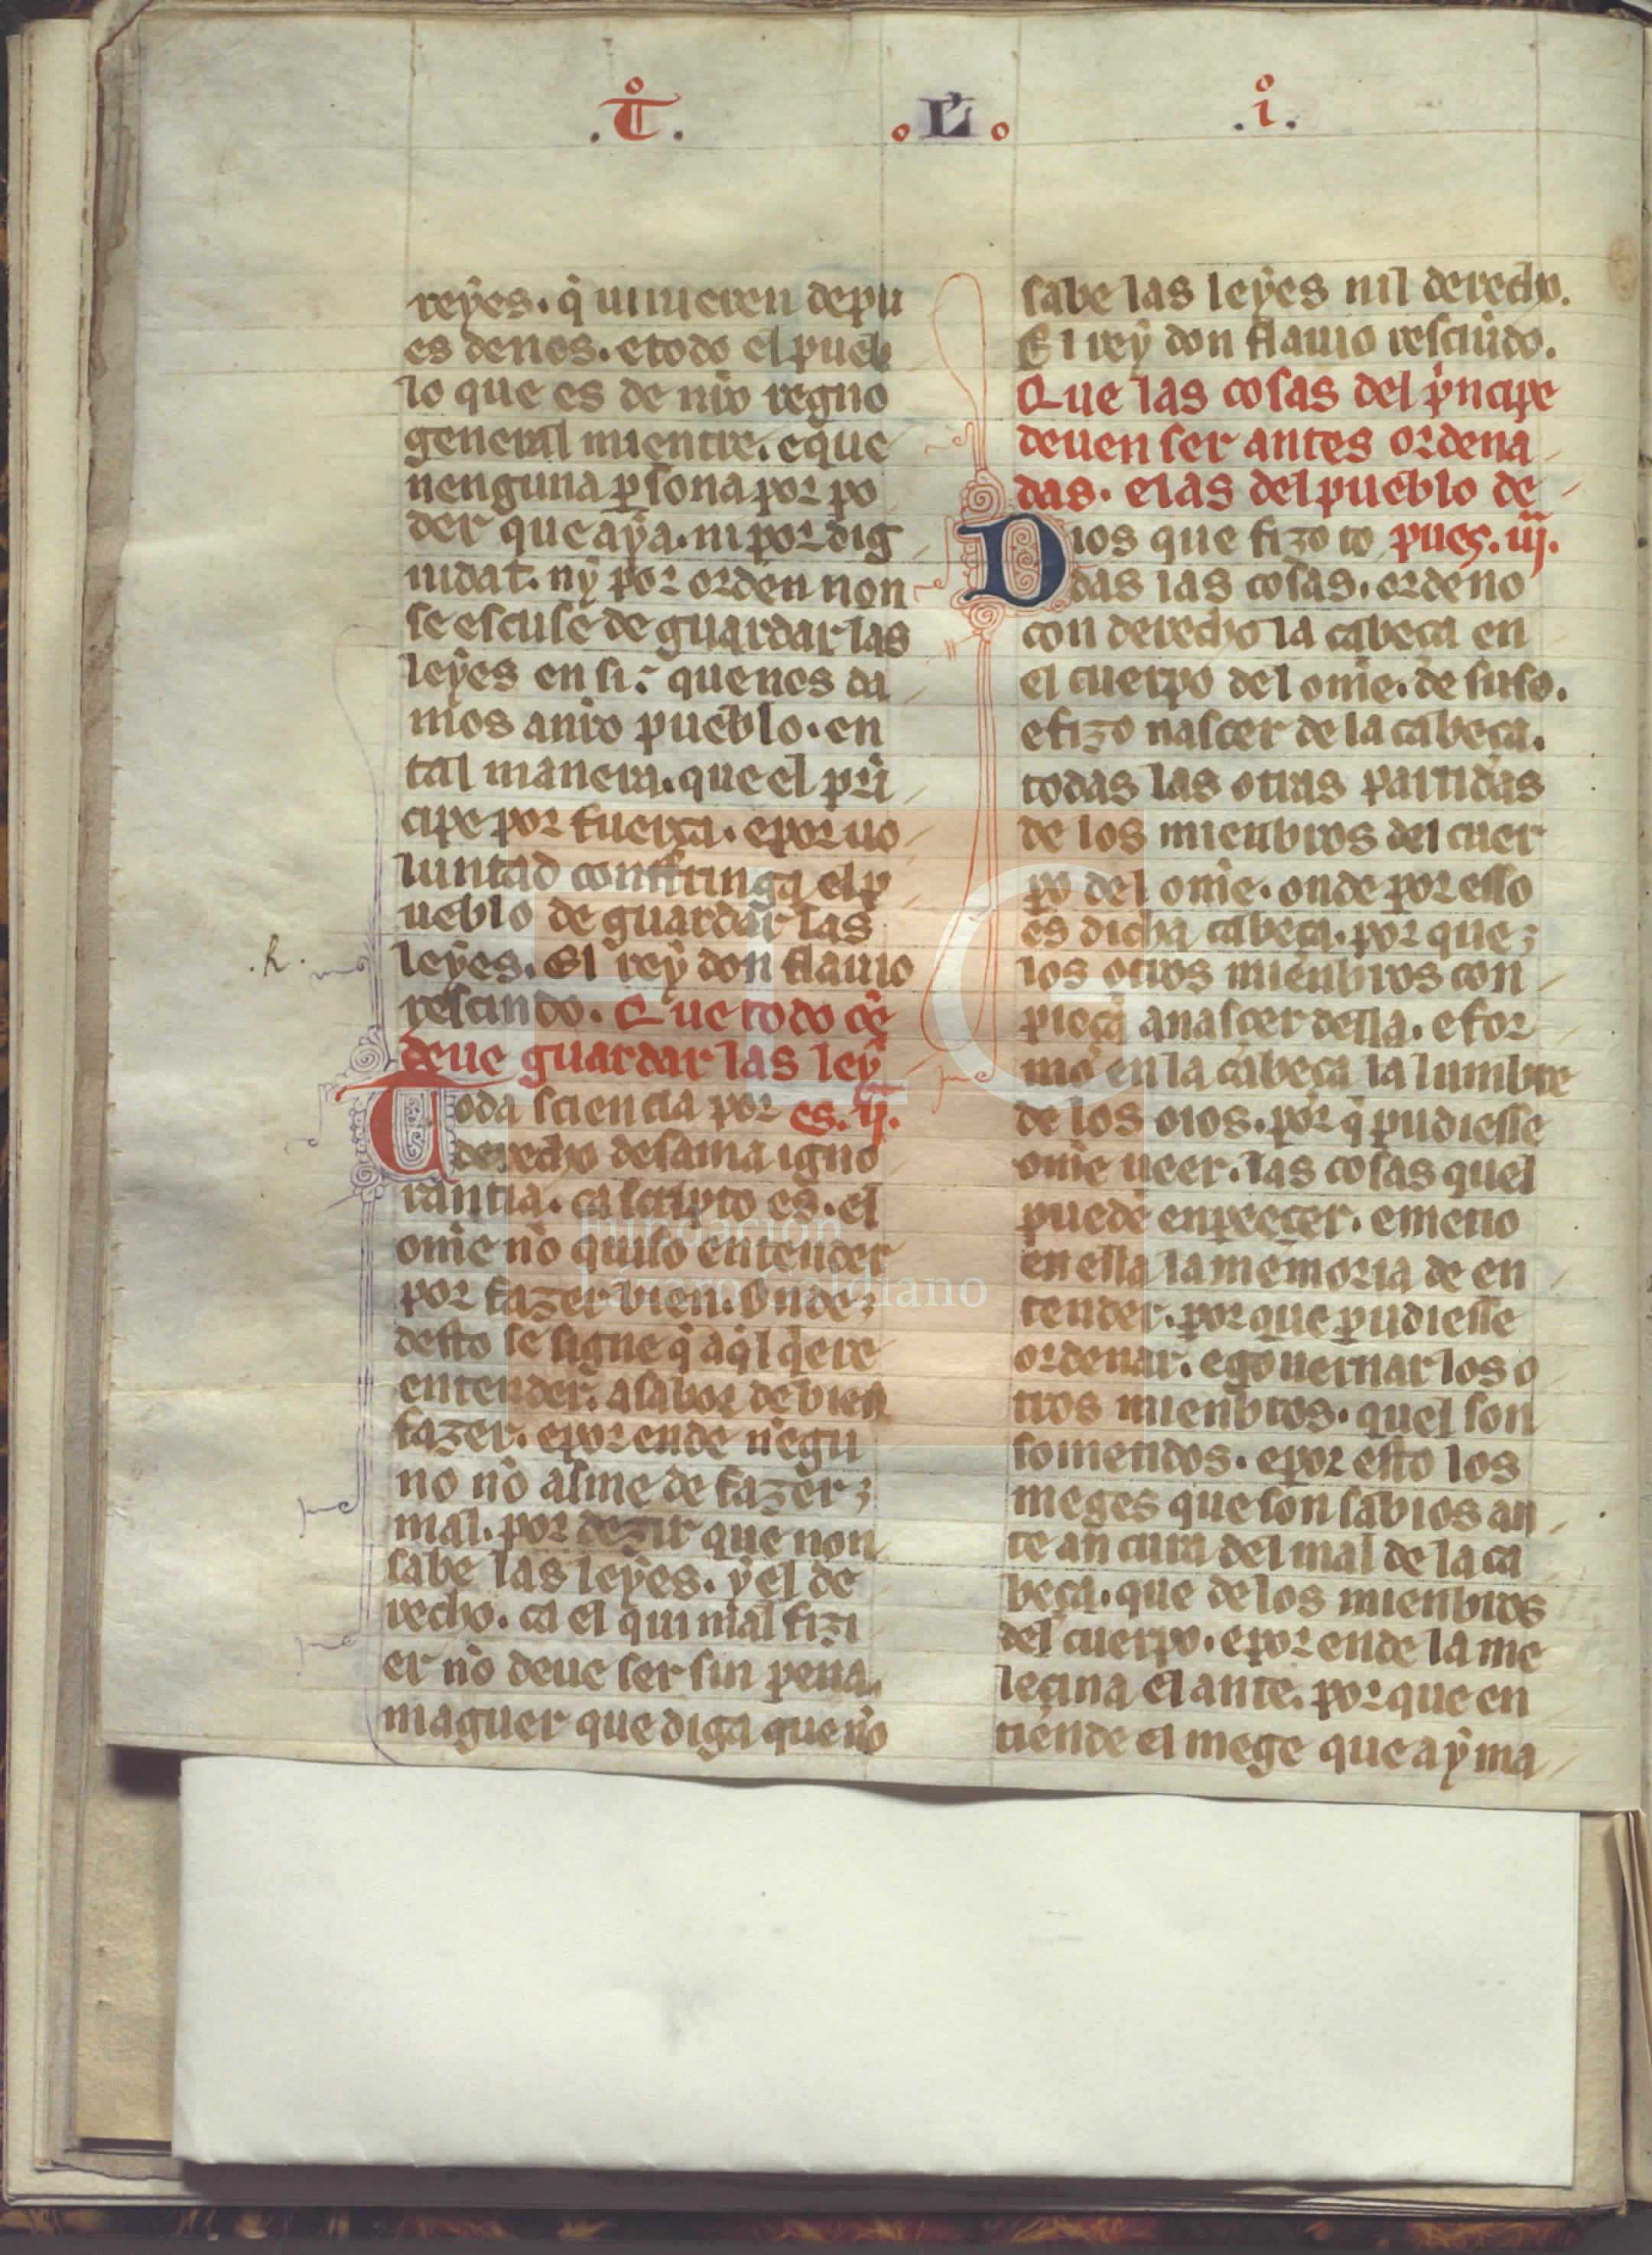 .T̊. .L̉. .i̊.
reyes. q̉ uinieren depu
es denos. e todo el pueb
lo que es de nr̃o regno
general mientre. e que
nenguna ꝑsona por po
der que aya. ni por dig
nidat. ny por orden non
se escuse de guardar las
leyes en si. que nos da
mos a nr̃o pueblo. en
tal manera. que el pri
cipe por fuerça. e por uo
luntad constringa el p
ueblo de guardar las
.h.
leyes. El rey don flauio
rescindo. Que todo oē
deue guardar las ley
Toda sciencia por es. ij.
derecho desama igno
rantia. ca scripto es. el
om̃e nõ quiso entender
por fazer bien. Onde
desto se sigue q̉ aq̉l q̉ere
entender. a sabor de bien
fazer. e por ende nēgu
no nõ asme de fazer
mal. por dezir que non
sabe las leyes. y el de
recho. ca el qui mal fizi
er nõ deue ser sin pena.
maguer que diga que nõ
sabe las leyes nil derecho.
El rey don flauio resciuido.
Que las cosas del p̉ncipe
deuen ser antes ordena
das. e las del pueblo de
Dios que fizo to pues. iij.
das las cosas. ordeno
con derecho la cabeça en
el cuerpo del om̃e. de suso.
e fizo nascer de la cabeça.
todas las otras partidas
de los mienbros del cuer
po del om̃e. onde por esso
es dicha cabeça. por que
los otros mienbros con
pieça a nasçer della. e for
mo en la cabeça la lumbre
de los oios. por q̉ pudiesse
om̃e ueer. las cosas quel
puede enpeeçer. e metio
en ella la memoria de en
tender. por que pudiesse
ordenar. e gouernar los o
tros mienbros. quel son
sometidos. e por esto los
meges que son sabios an
te an cura del mal de la ca
beça. que de los mienbros
del cuerpo. e por ende la me
lecina el ante. por que en
tiende el mege que ay ma
FLG
Fundación
Lázaro Galdiano